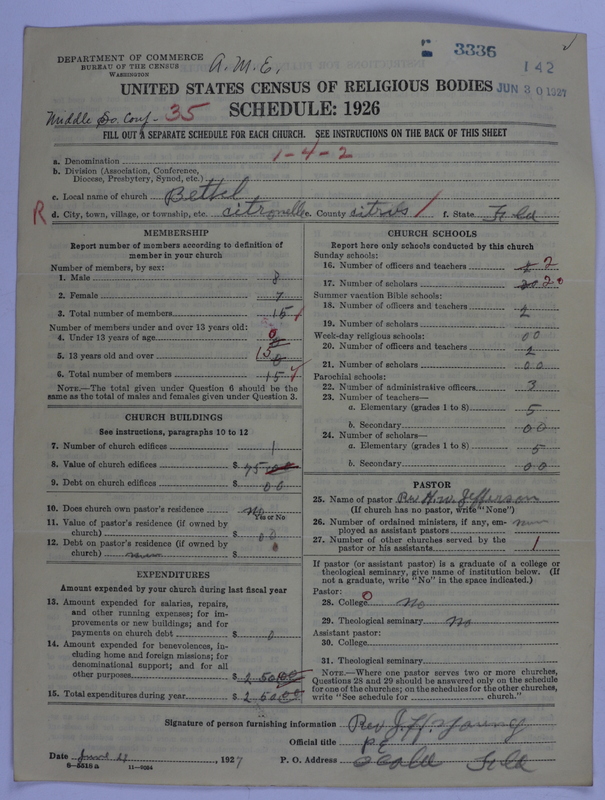 3336
142
DEPARTMENT OF COMMERCE
BUREAU OF THE CENSUS
WASHINGTON
A.M.E.
UNITED STATES CENSUS OF RELIGIOUS BODIES
JUN 30 1927
Middle So. Conf- 35
SCHEDULE: 1926
FILL OUT A SEPARATE SCHEDULE FOR EACH CHURCH. SEE INSTRUCTIONS ON THE BACK OF THIS SHEET
a. Denomination 1-4-2
b. Division (Association, Conference,
Diocese, Presbytery, Synod, etc.)
c. Local name of church Bethel
R d. City, town, village, or township, etc. citronelle e. County citrus f. State Fld
MEMBERSHIP
Report number of members according to definition of
member in your church
Number of members, by sex:
1. Male 8
2. Female 7
3. Total number of members 15
Number of members under and over 13 years old:
4. Under 13 years of age 0
5. 13 years old and over 15
6. Total number of members 15
NOTE.—The total given under Question 6 should be the
same as the total of males and females given under Question 3.
CHURCH BUILDINGS
See instructions, paragraphs 10 to 12
7. Number of church edifices 1
8. Value of church edifices $ 75
9. Debt on church edifices $ 00
10. Does church own pastor's residence No
Yes or No
11. Value of pastor's residence (if owned by
church) $ 00
12. Debt on pastor's residence (if owned by
church) $ 0
EXPENDITURES
Amount expended by your church during last fiscal year
13. Amount expended for salaries, repairs,
and other running expenses; for im-
provements or new buildings; and for
payments on church debt $ 0
14. Amount expended for benevolences, in-
cluding home and foreign missions; for
denominational support; and for all
other purposes $ 2 50
15. Total expenditures during year $ 2 50
CHURCH SCHOOLS
Report here only schools conducted by this church
Sunday schools:
16. Number of officers and teachers 2 2
17. Number of scholars 20 20
Summer vacation Bible schools:
18. Number of officers and teachers 2
19. Number of scholars 00
Week-day religious schools:
20. Number of officers and teachers 2
21. Number of scholars 00
Parochial schools:
22. Number of administrative officers 3
23. Number of teachers—
a. Elementary (grades 1 to 8) 5
b. Secondary 00
24. Number of scholars—
a. Elementary (grades 1 to 8) 5
b. Secondary 00
PASTOR
25. Name of pastor Rev H.W. Jefferson
(If church has no pastor, write "None")
26. Number of ordained ministers, if any, em-
ployed as assistant pastors
27. Number of other churches served by the
pastor or his assistants 1
If pastor (or assistant pastor) is a graduate of a college or
theological seminary, give name of institution below. (If
not a graduate, write "No" in the space indicated.)
Pastor:
28. College 0 No
29. Theological seminary No
Assistant pastor:
30. College
31. Theological seminary
NOTE.—Where one pastor serves two or more churches,
Questions 28 and 29 should be answered only on the schedule
for one of the churches; on the schedules for the other churches,
write "See schedule for church."
Signature of person furnishing information Rev J. H. Young
Official title P E
Date June 21, 1927 P. O. Address Ocala Fld
6—5518a 11—9024